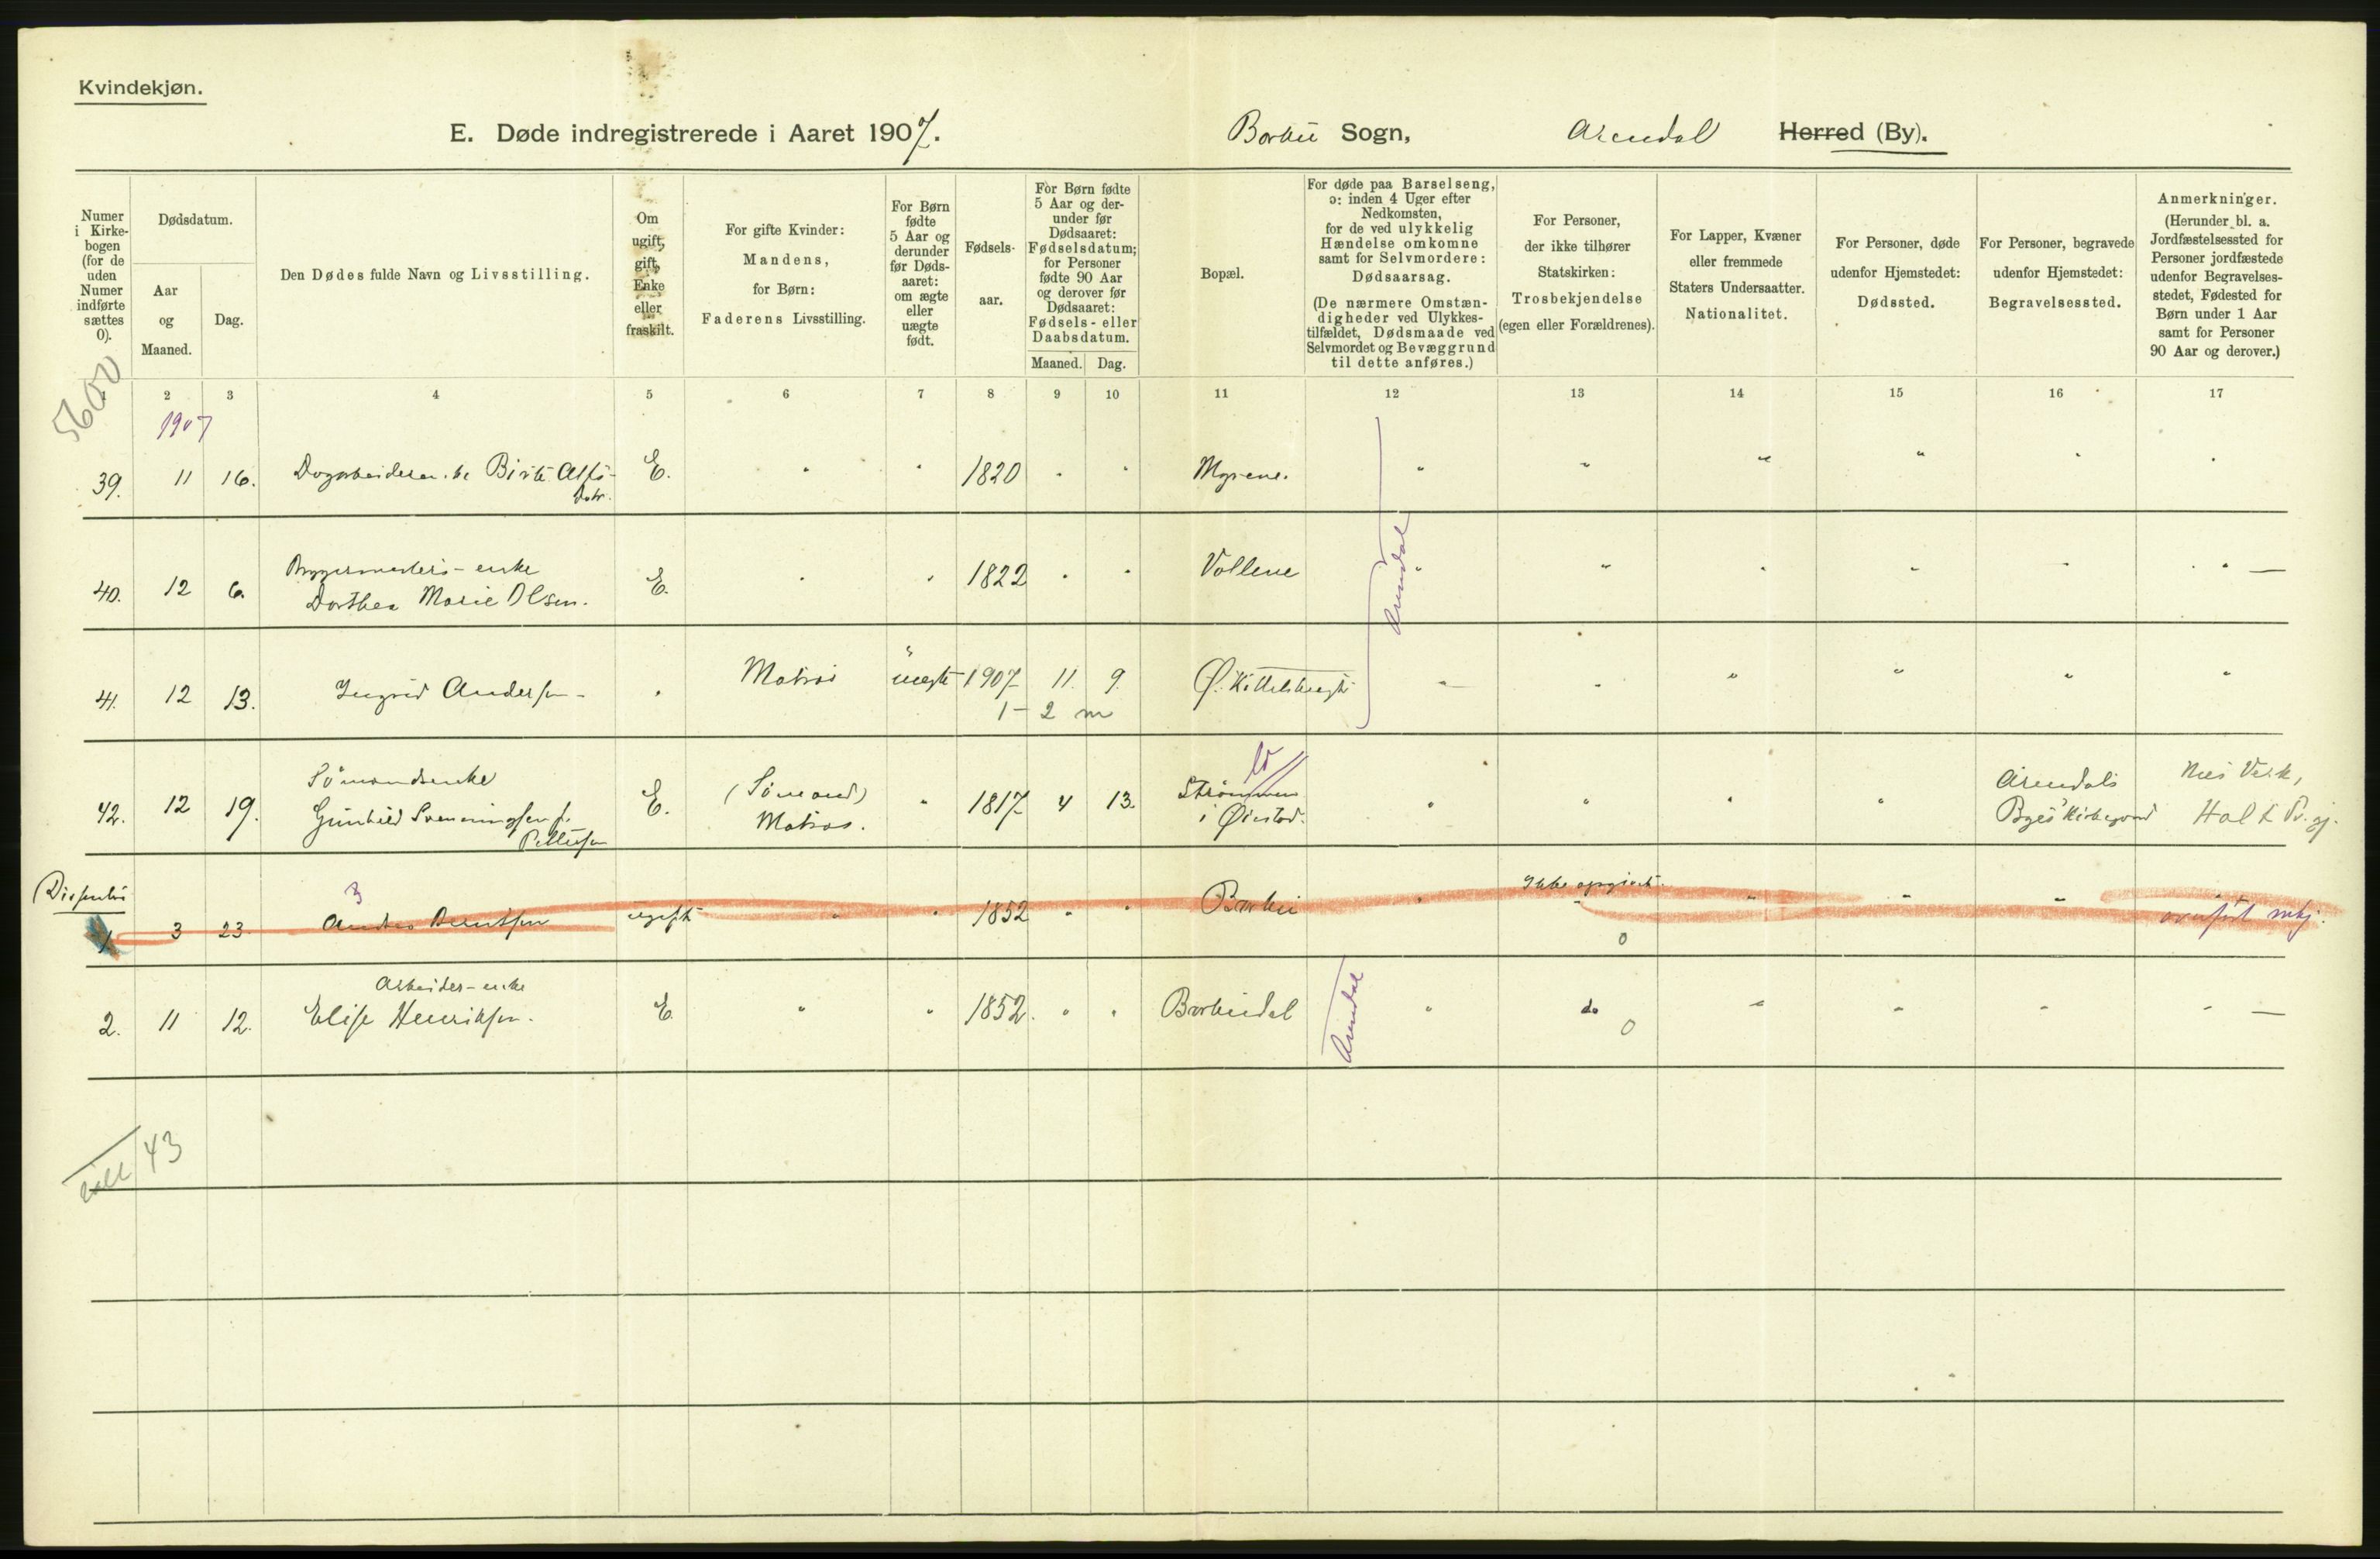 Kvindekjøn.
E. Døde indregistrerede i Aaret 1907.
Barbu Sogn, Arendal Herred (By).
Numer i Kirke-bogen (for de uden Numer indførte sættes 0).
Dødsdatum.
Aar og Maaned.
Dag.
Den Dødes fulde Navn og Livsstilling.
Om ugift, gift, Enke eller fraskilt.
For gifte Kvinder: Mandens, for Børn: Faderens Livsstilling.
For Børn fødte 5 Aar og derunder før Døds-aaret: om ægte eller uægte født.
Fødsels-aar.
For Børn fødte 5 Aar og der-under før Dødsaaret: Fødselsdatum; for Personer fødte 90 Aar og derover før Dødsaaret: Fødsels- eller Daabsdatum.
Maaned. Dag.
Bopæl.
For døde paa Barselseng, ɔ: inden 4 Uger efter Nedkomsten, for de ved ulykkelig Hændelse omkomne samt for Selvmordere: Dødsaarsag.
(De nærmere Omstæn-digheder ved Ulykkes-tilfældet, Dødsmaade ved Selvmordet og Bevæggrund til dette anføres.)
For Personer, der ikke tilhører Statskirken: Trosbekjendelse (egen eller Forældrenes).
For Lapper, Kvæner eller fremmede Staters Undersaatter. Nationalitet.
For Personer, døde udenfor Hjemstedet: Dødssted.
For Personer, begravede udenfor Hjemstedet: Begravelsessted.
Anmerkninger.
(Herunder bl. a. Jordfæstelsessted for Personer jordfæstede udenfor Begravelses-stedet, Fødested for Børn under 1 Aar samt for Personer 90 Aar og derover.)
1 2 3 4 5 6 7 8 9 10 11 12 13 14 15 16 17
5600
1907
39. 11 16. Birte E. " " 1820 " " Myrene. " " " " " "
Datr.
Arendal
enke
40. 12 6. Dorthea Marie Olsen. E. " " 1822 " " Vollene " " " " " " —
41. 12 13. Ingrid Andersen - " Matros uægte 1907 11. 9. " " " " " "
1 - 2 m
Sømandsenke (Sømand) Strømmen Arendals Næs Verk,
42. 12 19. Gunhild f. E. Matros. " 1817 4 13. i Øiestad. " " " " Byes Kirkegaard Holt Pr.gj.
Pettersen
3 Ikke opgivet.
1 3 23. Berntsen ugift " " 1852 " " Barbu " " " " " overført mkj.
0
Arbeider-enke Arendal
2. 11 12. Elise Henriksen. E. " " 1852. " " Barbudal " do " " " " —
0
43